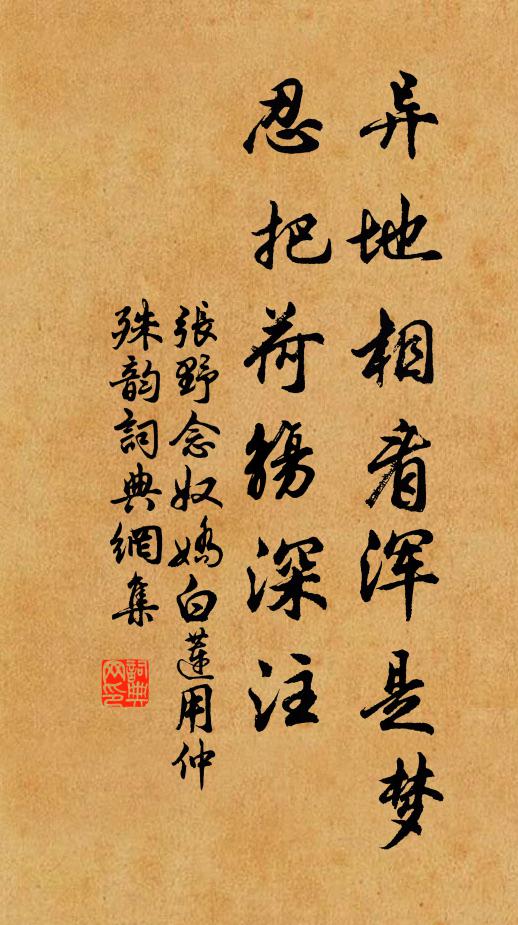 异地相看浑是梦
忍把荷觞深注
張野念奴嬌白蓮用仲
殊韵詞典網集
詞典
网印